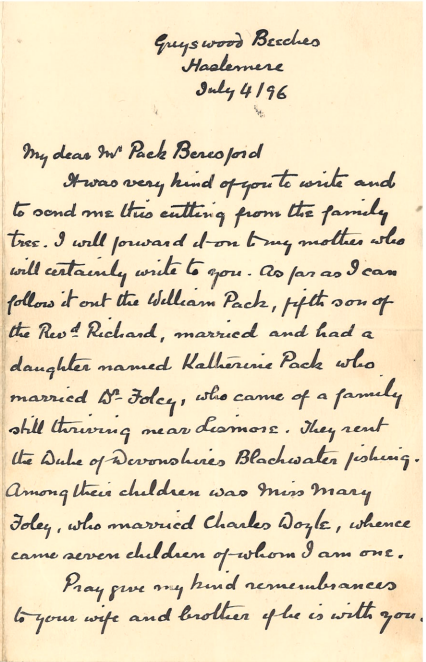 Greyswood Beeches
Haslemere
July 4/96
My dear Mr Pack Beresford
It was very kind of you to write and
to send me this cutting from the family
tree. I will forward it on to my mother who
will certainly write to you. As far as I can
follow it out the William Pack, fifth son of
the Revd. Richard, married and had a
daughter named Katherine Pack who
married Dr- Foley, who came of a family
still thriving near Lismore. They rent
the Duke of Devonshires Blackwater fishing.
Among their children was Miss Mary
Foley, who married Charles Doyle, whence
came seven children of whom I am one.
Pray give my kind remembrances
to your wife and brother if he is with you.